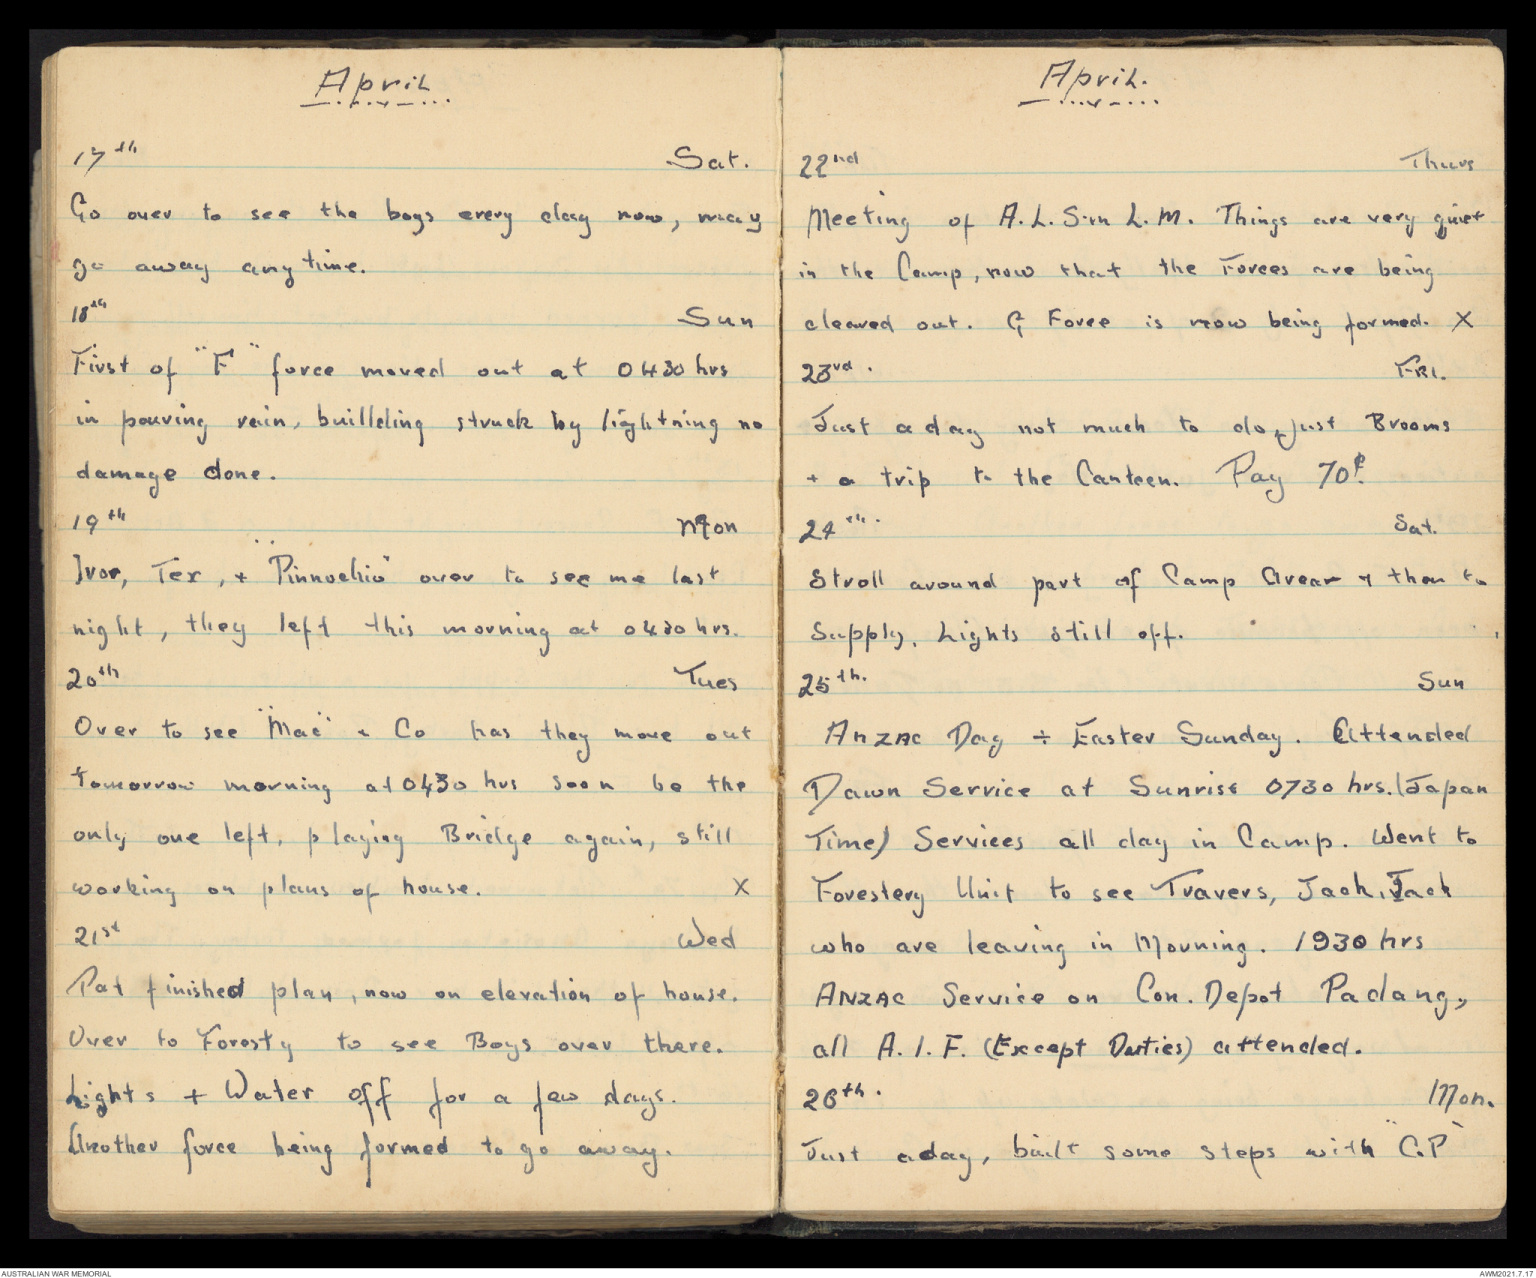 April
17th Sat.
Go over to see the boys every day now, may
go away any time.
18th Sun
First of "F" force moved out at 0430 hrs
in pouring rain, buillding struck by lightning no
damage done.
19th Mon
Ivor, Tex, + "Pinnochio" over to see me last
night, they left this morning at 0430 hrs.
20th Tues
Over to see "Mac" & Co has they move out
tomorrow morning at 0430 hrs soon be the
only one left, playing Bridge again, still
working on plans of house. X
21st Wed
Pat finished plan, now on elevation of house.
Over to Foresty to see Boys over there.
Lights + Water off for a few days.
Another force being formed to go away.
April.
22nd Thurs
Meeting of A.L.S. in L.M. Things are very quiet
in the Camp, now that the Forces are being
cleared out. G Force is now being formed. X
23rd. Fri.
Just a day not much to do, just Brooms
+ a trip to the Canteen. Pay 70¢.
24th. Sat.
Stroll around part of Camp Area & then to
Supply. Lights still off.
25th. Sun
Anzac Day + Easter Sunday. Attended
Dawn Service at Sunrise 0730 hrs. (Japan
Time) Services all day in Camp. Went to
Forestery Unit to see Travers, Jack, Jack
who are leaving in Morning. 1930 hrs
ANZAC Service on Con. Depot Padang,
all A.I.F. (Except Duties) attended.
26th. Mon.
Just a day, built some steps with "C.P"
AUSTRALIAN WAR MEMORIAL
AWM2021.7.17